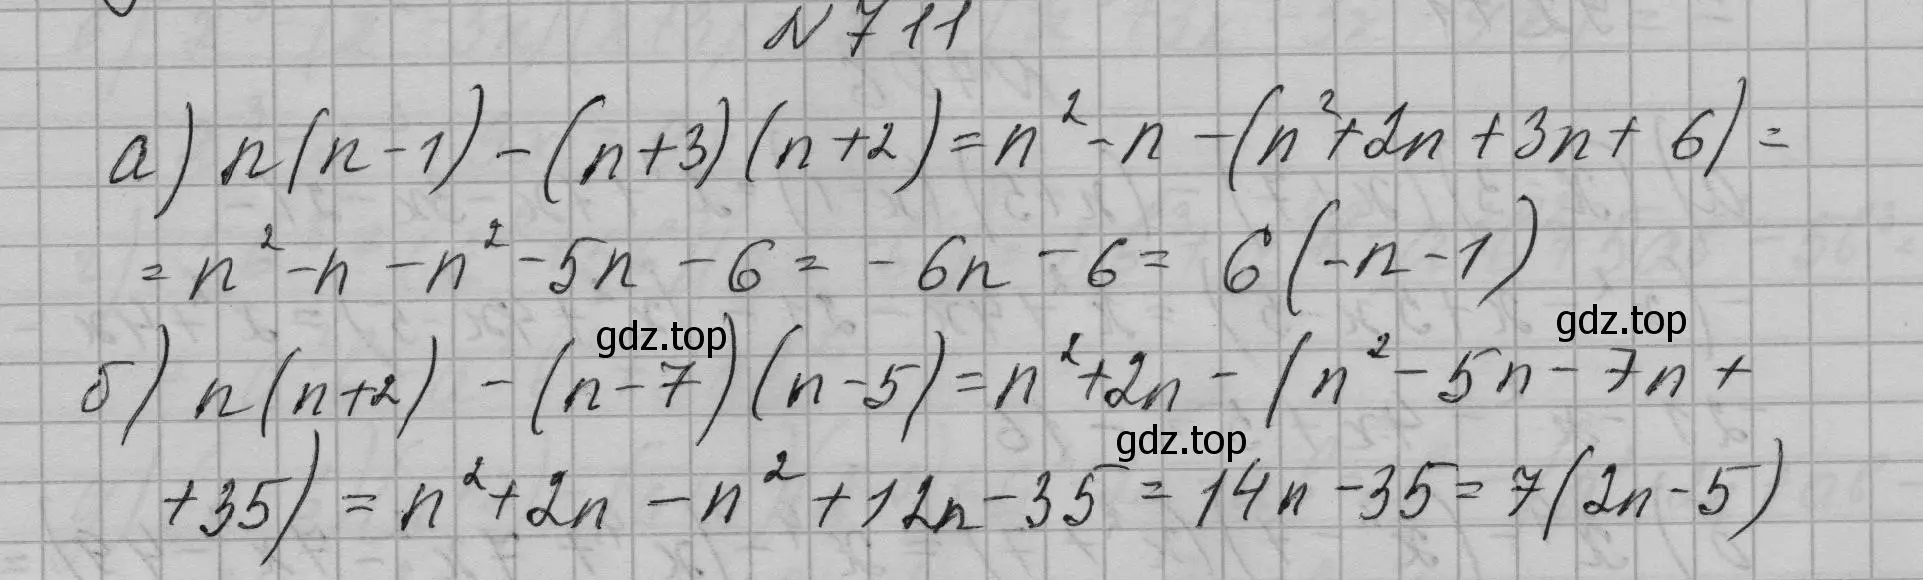 N 711
а) n(n-1) - (n+3)(n+2) = n² - n - (n² + 2n + 3n + 6) =
= n² - n - n² - 5n - 6 = - 6n - 6 = 6(-n-1)
gdz.top
gdz.top
б) n(n+2) - (n-7)(n-5) = n² + 2n - (n² - 5n - 7n +
gdz.top
+35) = n² + 2n - n² + 12n - 35 = 14n - 35 = 7(2n-5)